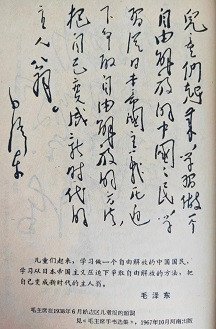 儿童们起来，学习做一个
自由解放的中国国民，学
习从日本帝国主义压迫
下争取自由解放的方法，
把自己变成新时代的
主人翁。
毛泽东
儿童们起来，学习做一个自由解放的中国国民，
学习从日本帝国主义压迫下争取自由解放的方法，把
自己变成新时代的主人翁。
毛泽东
毛主席在1938年6月给边区儿童团的题词
见《毛主席手书选集》，1967年10月河南出版